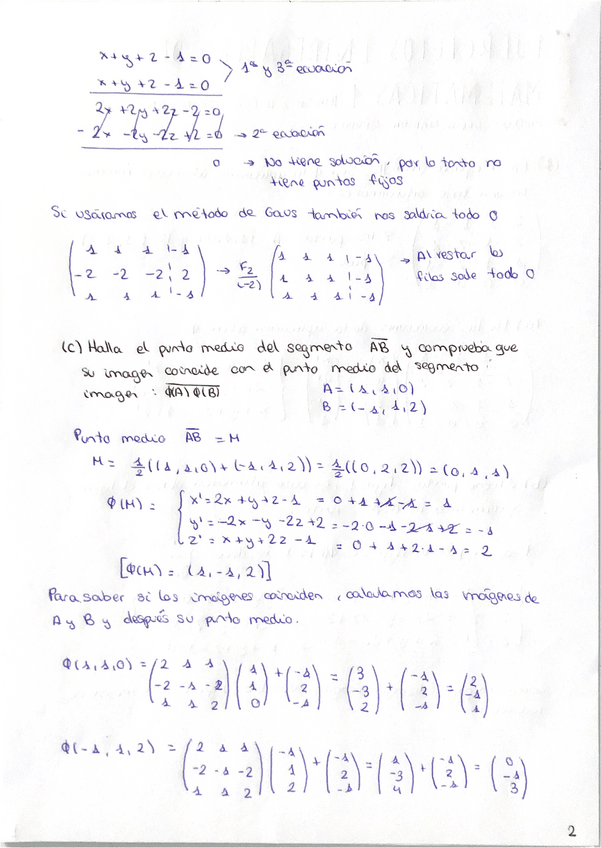 x+y+z-1=0
x+y+z-1=0 > 1ª y 3ª ecuación
2x+2y+2z-2=0
-2x-2y-2z+2=0 → 2ª ecuación
0 → No tiene solución, por lo tanto no
tiene puntos fijos
Si usáramos el método de Gaus también nos saldría todo 0
( 1 1 1 | -1 ; -2 -2 -2 | 2 ; 1 1 1 | -1 ) → F2/(-2) ( 1 1 1 | -1 ; 1 1 1 | -1 ; 1 1 1 | -1 ) → Al restar las
filas sale todo 0
(c) Halla el punto medio del segmento AB y comprueba que
su imagen coincide con el punto medio del segmento
imagen : Φ(A)Φ(B) A=(1,1,0)
B=(-1,1,2)
Punto medio AB = M
M= 1/2((1,1,0)+(-1,1,2))= 1/2((0,2,2))=(0,1,1)
Φ(M)= { x'=2x+y+z-1 = 0+1+1-1=1
y'=-2x-y-2z+2=-2·0-1-2·1+2=-1
z'=x+y+2z-1 = 0+1+2·1-1=2
[Φ(M)= (1,-1,2)]
Para saber si las imágenes coinciden, calculamos las imágenes de
A y B y después su punto medio.
Φ(1,1,0) = (2 1 1 ; -2 -1 -2 ; 1 1 2) (1 ; 1 ; 0) + (-1 ; 2 ; -1) = (3 ; -3 ; 2) + (-1 ; 2 ; -1) = (2 ; -1 ; 1)
Φ(-1,1,2) = (2 1 1 ; -2 -1 -2 ; 1 1 2) (-1 ; 1 ; 2) + (-1 ; 2 ; -1) = (1 ; -3 ; 4) + (-1 ; 2 ; -1) = (0 ; -1 ; 3)
2